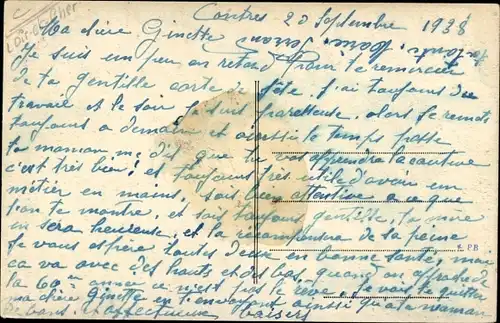 Loir-et-Cher
Contres 20 Septembre 1938
Ma chère Ginette
Je suis un peu en retard pour te remercier
de ta gentille carte de fête. j'ai toujours du
travail et le soir je suis paresseuse. alors je remets
toujours a demain et aussi le temps passe
ta maman m, dit que tu vas apprendre la couture
c'est très bien! et toujours très utile d'avoir un
métier en mains, sois bien attentive a ce que
l'on te montre, et sois toujours gentille, ta mère
en sera heureuse, et la récompensera de la peine
Je vous espère toutes deux en bonne santé, moi
ça va avec des hauts et des bas, quand on approche de
la 60e année ce n'est pas le rêve, Je vais te quitter
ma chère Ginette en t'envoyant ainsi qu'a ta maman
de bons et affectueux baisers
E. PB